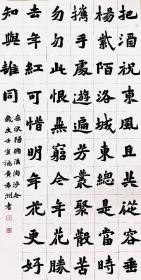 把酒祝東風且共從容垂
楊紫陌洛城東總是當時
攜手處遊遍芳叢聚散苦
匆匆此恨無窮今年花勝
去年紅可惜明年花更好
知與誰同
歐陽脩浪淘沙令
歲次壬寅